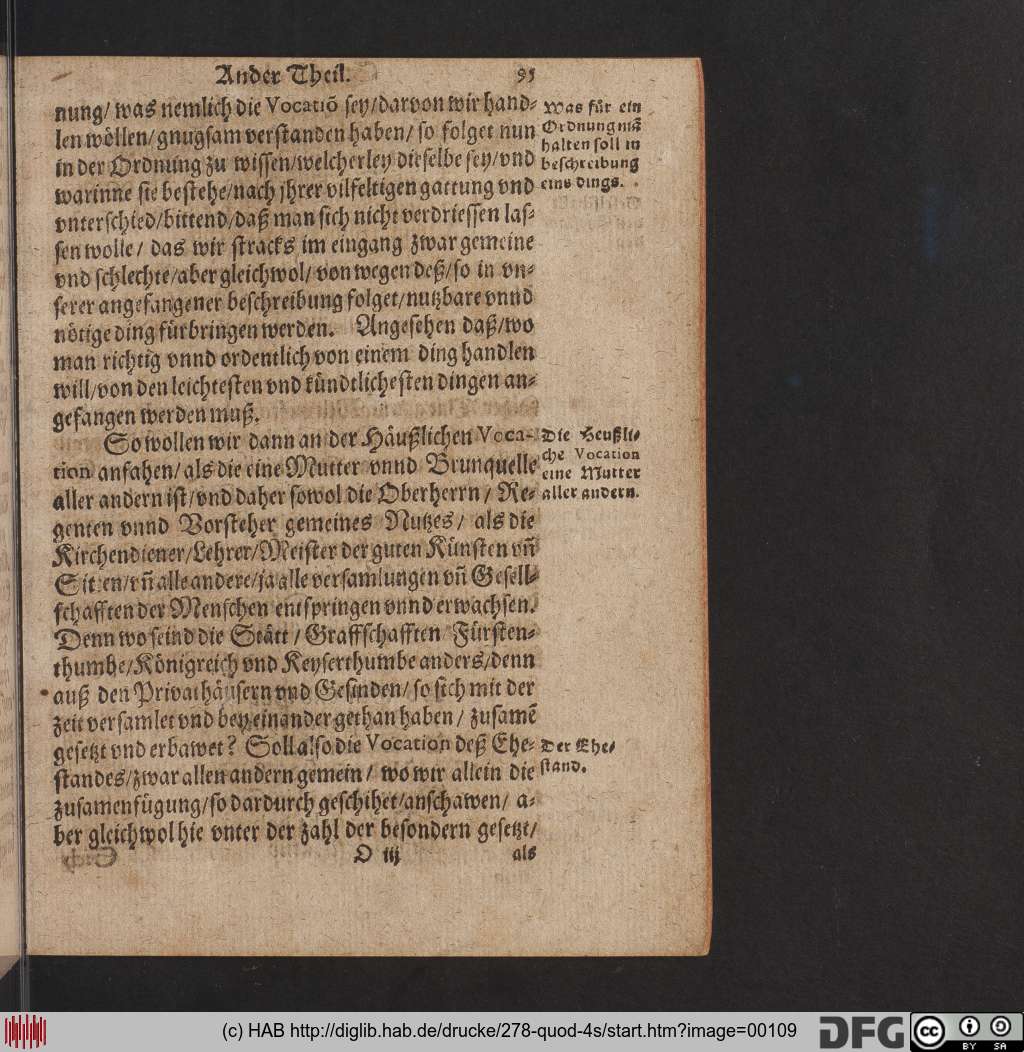 Ander Theil. 95
nung/ was nemlich die Vocatiõ sey/ darvon wir hand-
len wöllen/ gnugsam verstanden haben/ so folget nun
in der Ordnung zu wissen/ welcherley dieselbe sey/ vnd
warinne sie bestehe/ nach jhrer vilfeltigen gattung vnd
vnterschied/ bittend/ daß man sich nicht verdriessen las-
sen wolle/ das wir stracks im eingang zwar gemeine
vnd schlechte/ aber gleichwol/ von wegen deß/ so in vn-
serer angefangener beschreibung folget/ nutzbare vnnd
nötige ding fürbringen werden. Angesehen daß/ wo
man richtig vnnd ordentlich von einem ding handlen
will/ von den leichtesten vnd kündtlichesten dingen an-
gefangen werden muß.
Was für ein
Ordnung mã
halten soll in
beschreibung
eins dings.
So wollen wir dann an der Häußlichen Voca-
tion anfahen/ als die eine Mutter vnnd Brunquelle
aller andern ist/ vnd daher sowol die Oberherrn/ Re-
genten vnnd Vorsteher gemeines Nutzes/ als die
Kirchendiener/ Lehrer/ Meister der guten Künsten vñ
Sitten/ vñ alle andere/ ja alle versamlungen vñ Gesell-
schafften der Menschen entspringen vnnd erwachsen.
Denn wo seind die Stätt/ Graffschafften Fürsten-
thumbe/ Königreich vnd Keyserthumbe anders/ denn
auß den Privathäusern vnd Gesinden/ so sich mit der
zeit versamlet vnd bey einander gethan haben/ zusamẽ
gesetzt vnd erbawet? Soll also die Vocation deß Ehe-
standes/ zwar allen andern gemein/ wo wir allein die
zusamenfügung/ so dardurch geschihet/ anschawen/ a-
ber gleichwol hie vnter der zahl der besondern gesetzt/
Die Heußli-
che Vocation
eine Mutter
aller andern.
Der Ehe-
stand.
O iij als
(c) HAB http://diglib.hab.de/drucke/278-quod-4s/start.htm?image=00109
DFG
cc BY SA